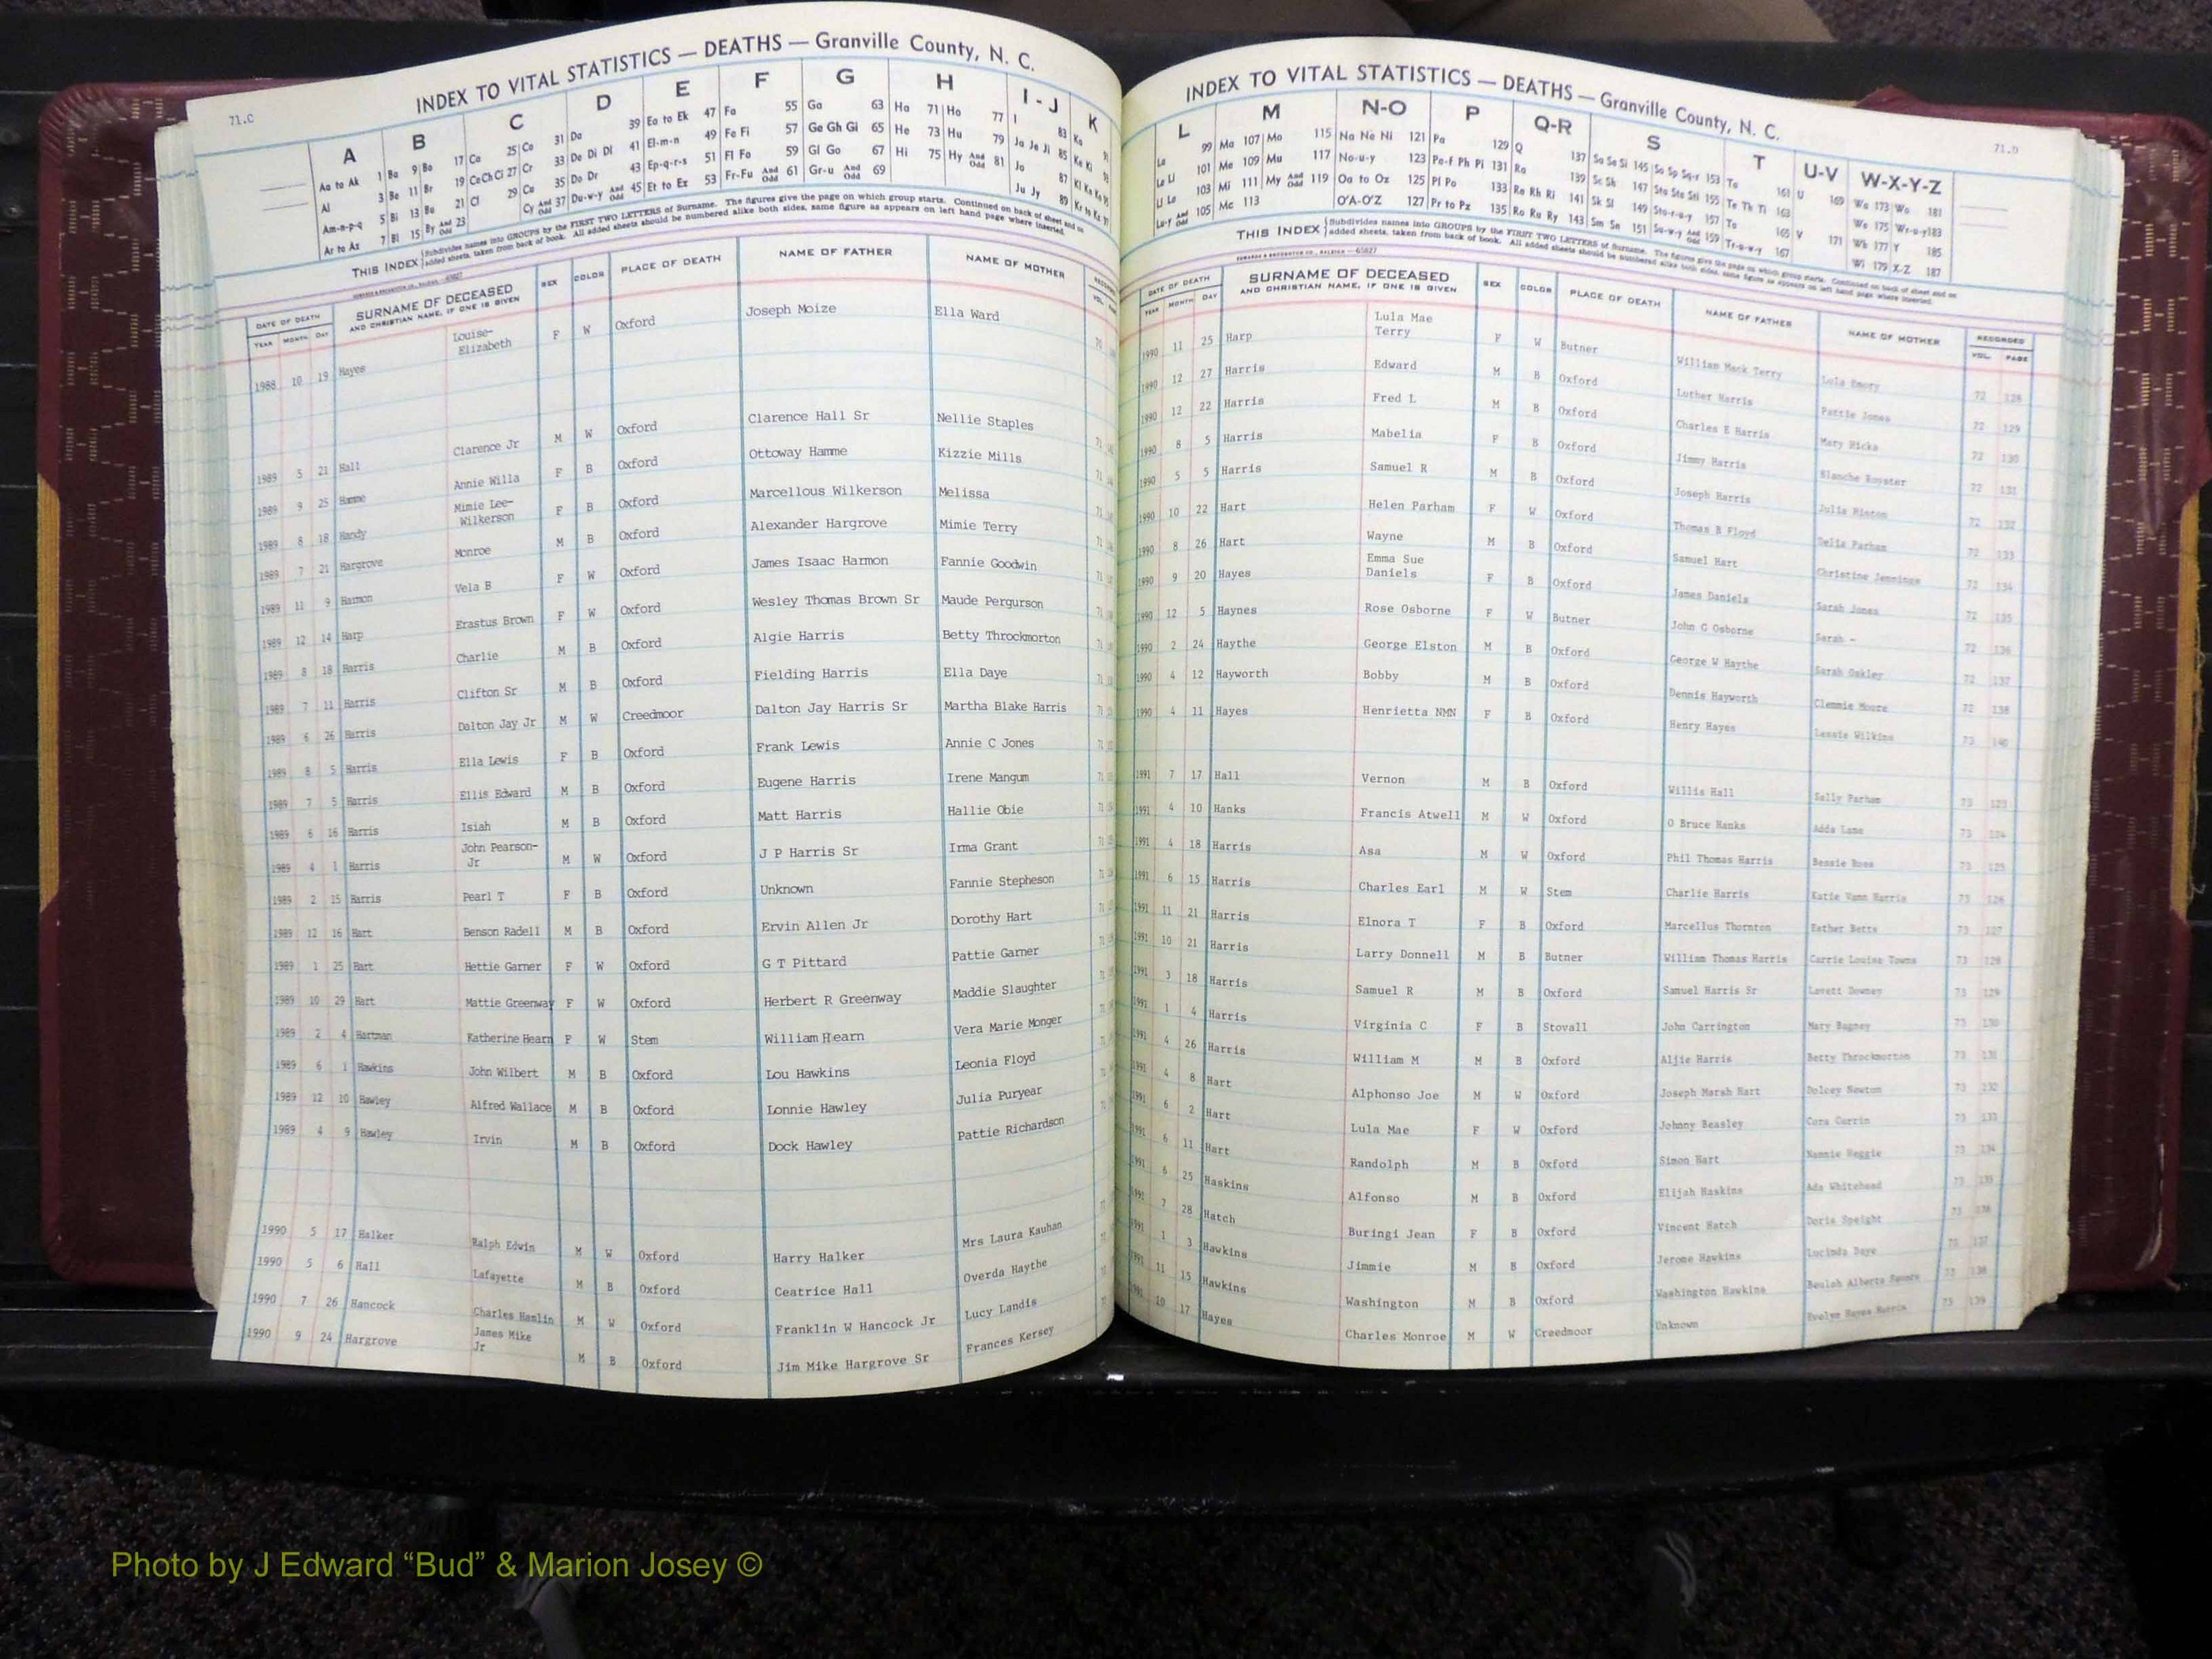 71.C
INDEX TO VITAL STATISTICS — DEATHS — Granville County, N. C.
A B C D E F G H I - J K
Aa to Ak 1 Ba 9 Bo 17 Ca 25 Co 31 Da 39 Ea to Ek 47 Fa 55 Ga 63 Ha 71 Ho 77 I 83 Ka
Al 3 Be 11 Br 19 Ce Ch Ci 27 Cr 33 De Di Dl 41 El-m-n 49 Fe Fi 57 Ge Gh Gi 65 He 73 Hu 79 Ja Je Ji 85 Ke Ki
Am-n-p-q 5 Bi 13 Bu 21 Cl 29 Cu 35 Do Dr 43 Ep-q-r-s 51 Fl Fo 59 Gl Go 67 Hi 75 Hy And Odd 81 Jo 87
Ar to Az 7 Bl 15 By And Odd 23 Cy And Odd 37 Du-w-y And Odd 45 Et to Ez 53 Fr-Fu And Odd 61 Gr-u And Odd 69 Ju Jy 89
THIS INDEX Subdivides names into GROUPS by the FIRST TWO LETTERS of Surname. The figures give the page on which group starts. Continued on back of sheet and on
added sheets, taken from back of book. All added sheets should be numbered alike both sides, same figure as appears on left hand page where inserted.
DATE OF DEATH SURNAME OF DECEASED SEX COLOR PLACE OF DEATH NAME OF FATHER NAME OF MOTHER
YEAR MONTH DAY AND CHRISTIAN NAME, IF ONE IS GIVEN
1988 10 19 Hayes Louise-Elizabeth F W Oxford Joseph Moize Ella Ward
1989 5 21 Hall Clarence Jr M W Oxford Clarence Hall Sr Nellie Staples
1989 9 25 Hamme Annie Willa F B Oxford Ottoway Hamme Kizzie Mills
1989 8 18 Handy Mimie Lee-Wilkerson F B Oxford Marcellous Wilkerson Melissa
1989 7 21 Hargrove Monroe M B Oxford Alexander Hargrove Mimie Terry
1989 11 9 Harmon Vela B F W Oxford James Isaac Harmon Fannie Goodwin
1989 12 14 Harp Erastus Brown F W Oxford Wesley Thomas Brown Sr Maude Pergurson
1989 8 18 Harris Charlie M B Oxford Algie Harris Betty Throckmorton
1989 7 11 Harris Clifton Sr M B Oxford Fielding Harris Ella Daye
1989 6 26 Harris Dalton Jay Jr M W Creedmoor Dalton Jay Harris Sr Martha Blake Harris
1989 8 5 Harris Ella Lewis F B Oxford Frank Lewis Annie C Jones
1989 7 5 Harris Ellis Edward M B Oxford Eugene Harris Irene Mangum
1989 6 16 Harris Isiah M B Oxford Matt Harris Hallie Obie
1989 4 1 Harris John Pearson-Jr M W Oxford J P Harris Sr Irma Grant
1989 2 15 Harris Pearl T F B Oxford Unknown Fannie Stepheson
1989 12 16 Hart Benson Radell M B Oxford Ervin Allen Jr Dorothy Hart
1989 1 25 Hart Hettie Garner F W Oxford G T Pittard Pattie Garner
1989 10 29 Hart Mattie Greenway F W Oxford Herbert R Greenway Maddie Slaughter
1989 2 4 Hartman Katherine Hearn F W Stem William Hearn Vera Marie Monger
1989 6 1 Hawkins John Wilbert M B Oxford Lou Hawkins Leonia Floyd
1989 12 10 Hawley Alfred Wallace M B Oxford Lonnie Hawley Julia Puryear
1989 4 9 Hawley Irvin M B Oxford Dock Hawley Pattie Richardson
1990 5 17 Halker Ralph Edwin M W Oxford Harry Halker Mrs Laura Kauhan
1990 5 6 Hall Lafayette M B Oxford Ceatrice Hall Overda Haythe
1990 7 26 Hancock Charles Hamlin M W Oxford Franklin W Hancock Jr Lucy Landis
1990 9 24 Hargrove James Mike Jr M B Oxford Jim Mike Hargrove Sr Frances Kersey
71.D
INDEX TO VITAL STATISTICS — DEATHS — Granville County, N. C.
L M N-O P Q-R S T U-V W-X-Y-Z
La 99 Ma 107 Mo 115 Na Ne Ni 121 Pa 129 Q 137 Sa Se Si 145 So Sp Sq-r 153 Ta 161 U 169 Wa 173 Wo 181
Le Ll 101 Me 109 Mu 117 No-u-y 123 Pe-f Ph Pi 131 Ra 139 Sc Sh 147 Sta Ste Sti 155 Te Th Ti 163 We 175 Wr-u-y 183
Li Lo 103 Mi 111 My And Odd 119 Oa to Oz 125 Pl Po 133 Re Rh Ri 141 Sk Sl 149 Sto-r-u-y 157 To 165 V 171 Wh 177 Y 185
Lu-y And Odd 105 Mc 113 O'A-O'Z 127 Pr to Pz 135 Ro Ru Ry 143 Sm Sn 151 Su-w-y And Odd 159 Tr-u-w-y 167 Wi 179 X-Z 187
THIS INDEX Subdivides names into GROUPS by the FIRST TWO LETTERS of Surname. The figures give the page on which group starts. Continued on back of sheet and on
added sheets, taken from back of book. All added sheets should be numbered alike both sides, same figure as appears on left hand page where inserted.
DATE OF DEATH SURNAME OF DECEASED SEX COLOR PLACE OF DEATH NAME OF FATHER NAME OF MOTHER RECORDED
YEAR MONTH DAY AND CHRISTIAN NAME, IF ONE IS GIVEN VOL. PAGE
1990 11 25 Harp Lula Mae Terry F W Butner William Mack Terry Lula Emory 72 128
1990 12 27 Harris Edward M B Oxford Luther Harris Pattie Jones 72 129
1990 12 22 Harris Fred L M B Oxford Charles E Harris Mary Hicks 72 130
1990 8 5 Harris Mabelia F B Oxford Jimmy Harris Blanche Royster 72 131
1990 5 5 Harris Samuel R M B Oxford Joseph Harris Julia Hinton 72 132
1990 10 22 Hart Helen Parham F W Oxford Thomas B Floyd Delia Parham 72 133
1990 8 26 Hart Wayne M B Oxford Samuel Hart Christine Jennings 72 134
1990 9 20 Hayes Emma Sue Daniels F B Oxford James Daniels Sarah Jones 72 135
1990 12 5 Haynes Rose Osborne F W Butner John G Osborne Sarah - 72 136
1990 2 24 Haythe George Elston M B Oxford George W Haythe Sarah Oakley 72 137
1990 4 12 Hayworth Bobby M B Oxford Dennis Hayworth Clemmie Moore 72 138
1990 4 11 Hayes Henrietta NMN F B Oxford Henry Hayes Lessie Wilkins 73 140
1991 7 17 Hall Vernon M B Oxford Willis Hall Sally Parham 73 123
1991 4 10 Hanks Francis Atwell M W Oxford O Bruce Hanks Adda Lane 73 124
1991 4 18 Harris Asa M W Oxford Phil Thomas Harris Bessie Ross 73 125
1991 6 15 Harris Charles Earl M W Stem Charlie Harris Katie Vann Harris 73 126
1991 11 21 Harris Elnora T F B Oxford Marcellus Thornton Esther Betts 73 127
1991 10 21 Harris Larry Donnell M B Butner William Thomas Harris Carrie Louise Towns 73 128
1991 3 18 Harris Samuel R M B Oxford Samuel Harris Sr Lovett Downey 73 129
1991 1 4 Harris Virginia C F B Stovall John Carrington Mary Bagney 73 130
1991 4 26 Harris William M M B Oxford Aljie Harris Betty Throckmorton 73 131
1991 4 8 Hart Alphonso Joe M W Oxford Joseph Marsh Hart Dolcey Newton 73 132
1991 6 2 Hart Lula Mae F W Oxford Johnny Beasley Cora Currin 73 133
1991 6 11 Hart Randolph M B Oxford Simon Hart Nannie Reggie 73 134
1991 6 25 Haskins Alfonso M B Oxford Elijah Haskins Ada Whitehead 73 135
1991 7 28 Hatch Buringi Jean F B Oxford Vincent Hatch Doris Speight 73 136
1991 1 3 Hawkins Jimmie M B Oxford Jerome Hawkins Lucinda Daye 73 137
1991 11 15 Hawkins Washington M B Oxford Washington Hawkins Beulah Alberta 73 138
1991 10 17 Hayes Charles Monroe M W Creedmoor Unknown Evelyn Hayes Harris 73 139
Photo by J Edward “Bud” & Marion Josey ©